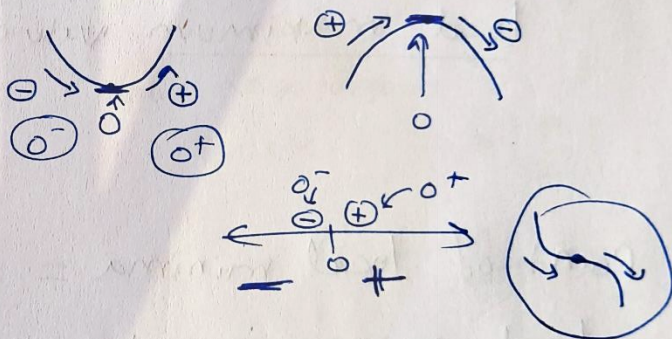 ⊕ ⊖
⊖ ⊕
0⁻ 0 0⁺
0
0⁻ 0⁺
⊖ ⊕
0
− +